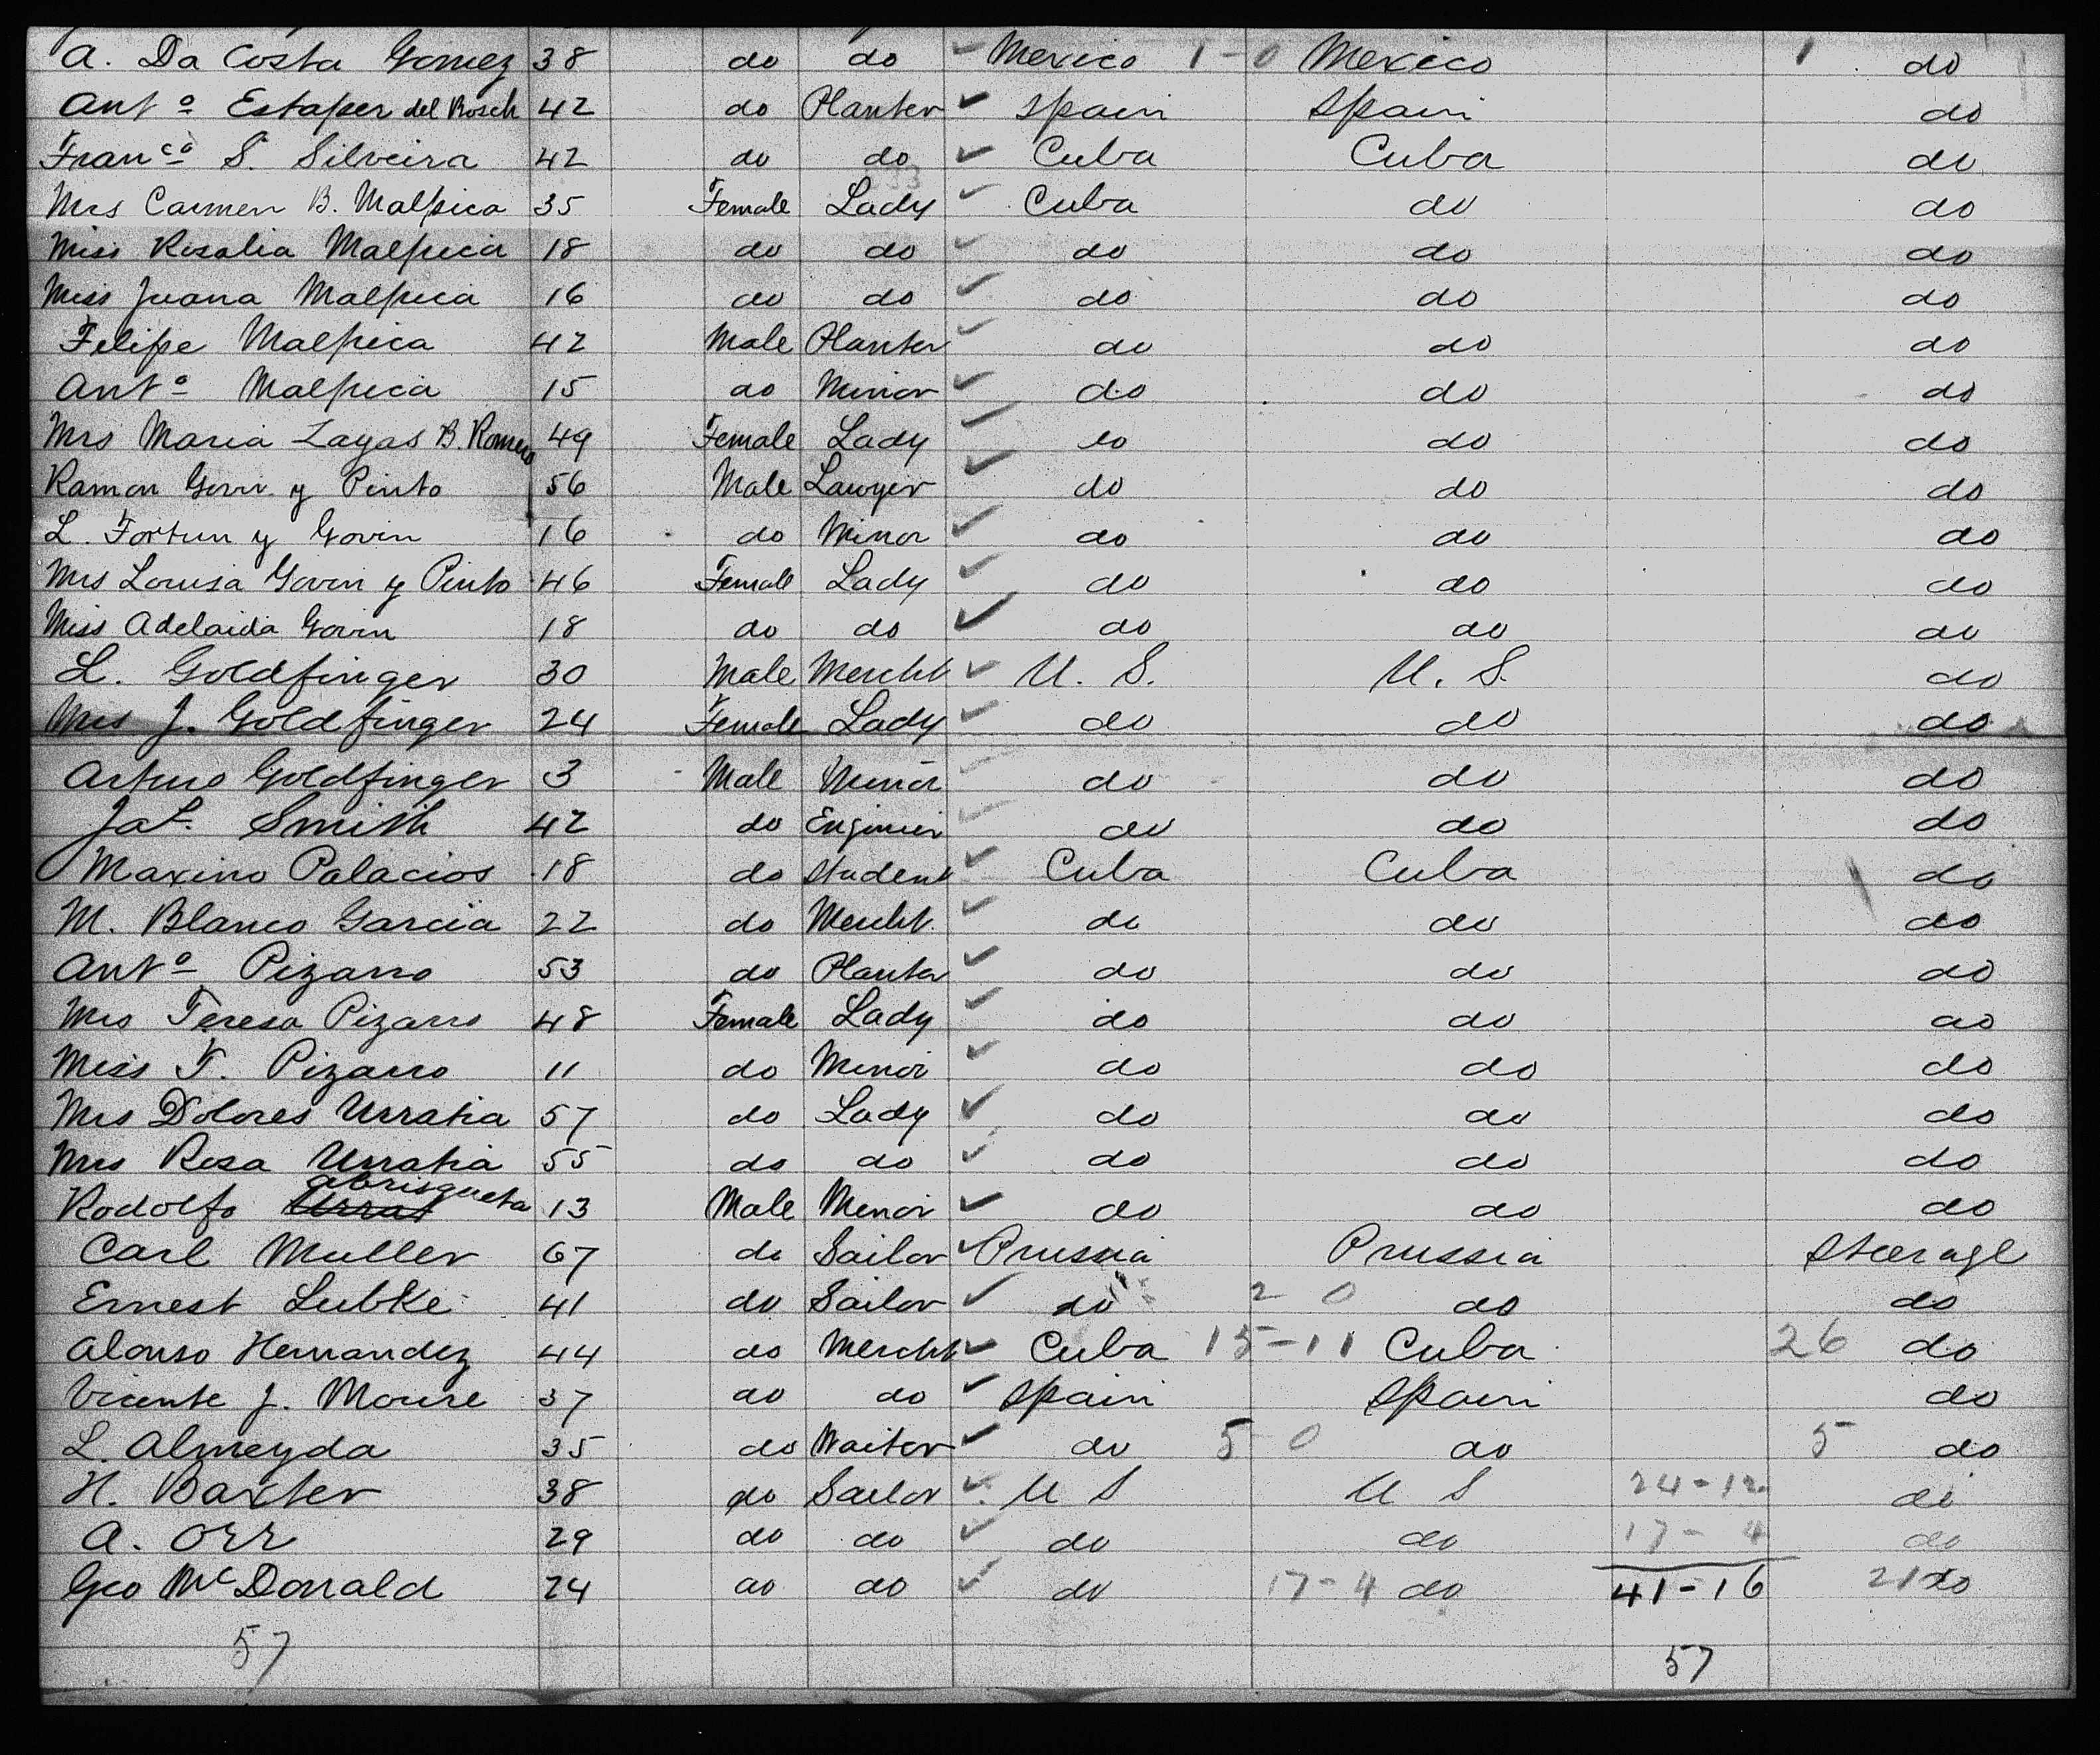 A. Da Costa Gomez 38 do do ✓ Mexico 1-0 Mexico 1 do
Antº Estaper del Bosch 42 do Planter ✓ Spain Spain do
Francº S. Silveira 42 do do ✓ Cuba Cuba do
Mrs Carmen B. Malpica 35 Female Lady ✓ Cuba do do
Miss Rosalia Malpica 18 do do ✓ do do do
Miss Juana Malpica 16 do do ✓ do do do
Felipe Malpica 42 Male Planter ✓ do do do
Antº Malpica 15 do Minor ✓ do do do
Mrs Maria Zayas B. Romero 49 Female Lady ✓ do do do
Ramon Govin y Pinto 56 Male Lawyer ✓ do do do
L. Fortun y Govin 16 do Minor ✓ do do do
Mrs Louisa Govin y Pinto 46 Female Lady ✓ do do do
Miss Adelaida Govin 18 do do ✓ do do do
L. Goldfinger 30 Male Mercht ✓ U. S. U. S. do
Mrs J. Goldfinger 24 Female Lady ✓ do do do
Arturo Goldfinger 3 Male Minor ✓ do do do
Jas. Smith 42 do Engineer ✓ do do do
Maximo Palacios 18 do Student ✓ Cuba Cuba do
M. Blanco Garcia 22 do Mercht. ✓ do do do
Antº Pizarro 53 do Planter ✓ do do do
Mrs Teresa Pizarro 48 Female Lady ✓ do do do
Miss F. Pizarro 11 do Minor ✓ do do do
Mrs Dolores Urratia 57 do Lady ✓ do do do
Mrs Rosa Urratia 55 do do ✓ do do do
Rodolfo Abrisqueta 13 Male Minor ✓ do do do
Carl Muller 67 do Sailor ✓ Prussia Prussia Steerage
Ernest Lubke 41 do Sailor ✓ do 2 0 do do
Alonso Hernandez 44 do Mercht ✓ Cuba 15-11 Cuba 26 do
Vicente J. Moure 37 do do ✓ Spain Spain do
L. Almeyda 35 do Waiter ✓ do 5 0 do 5 do
H. Baxter 38 do Sailor ✓ U S U S 24-12 do
A. Orr 29 do do ✓ do do 17-4 do
Geo McDonald 24 do do ✓ do 17-4 do 41-16 21 do
57 57